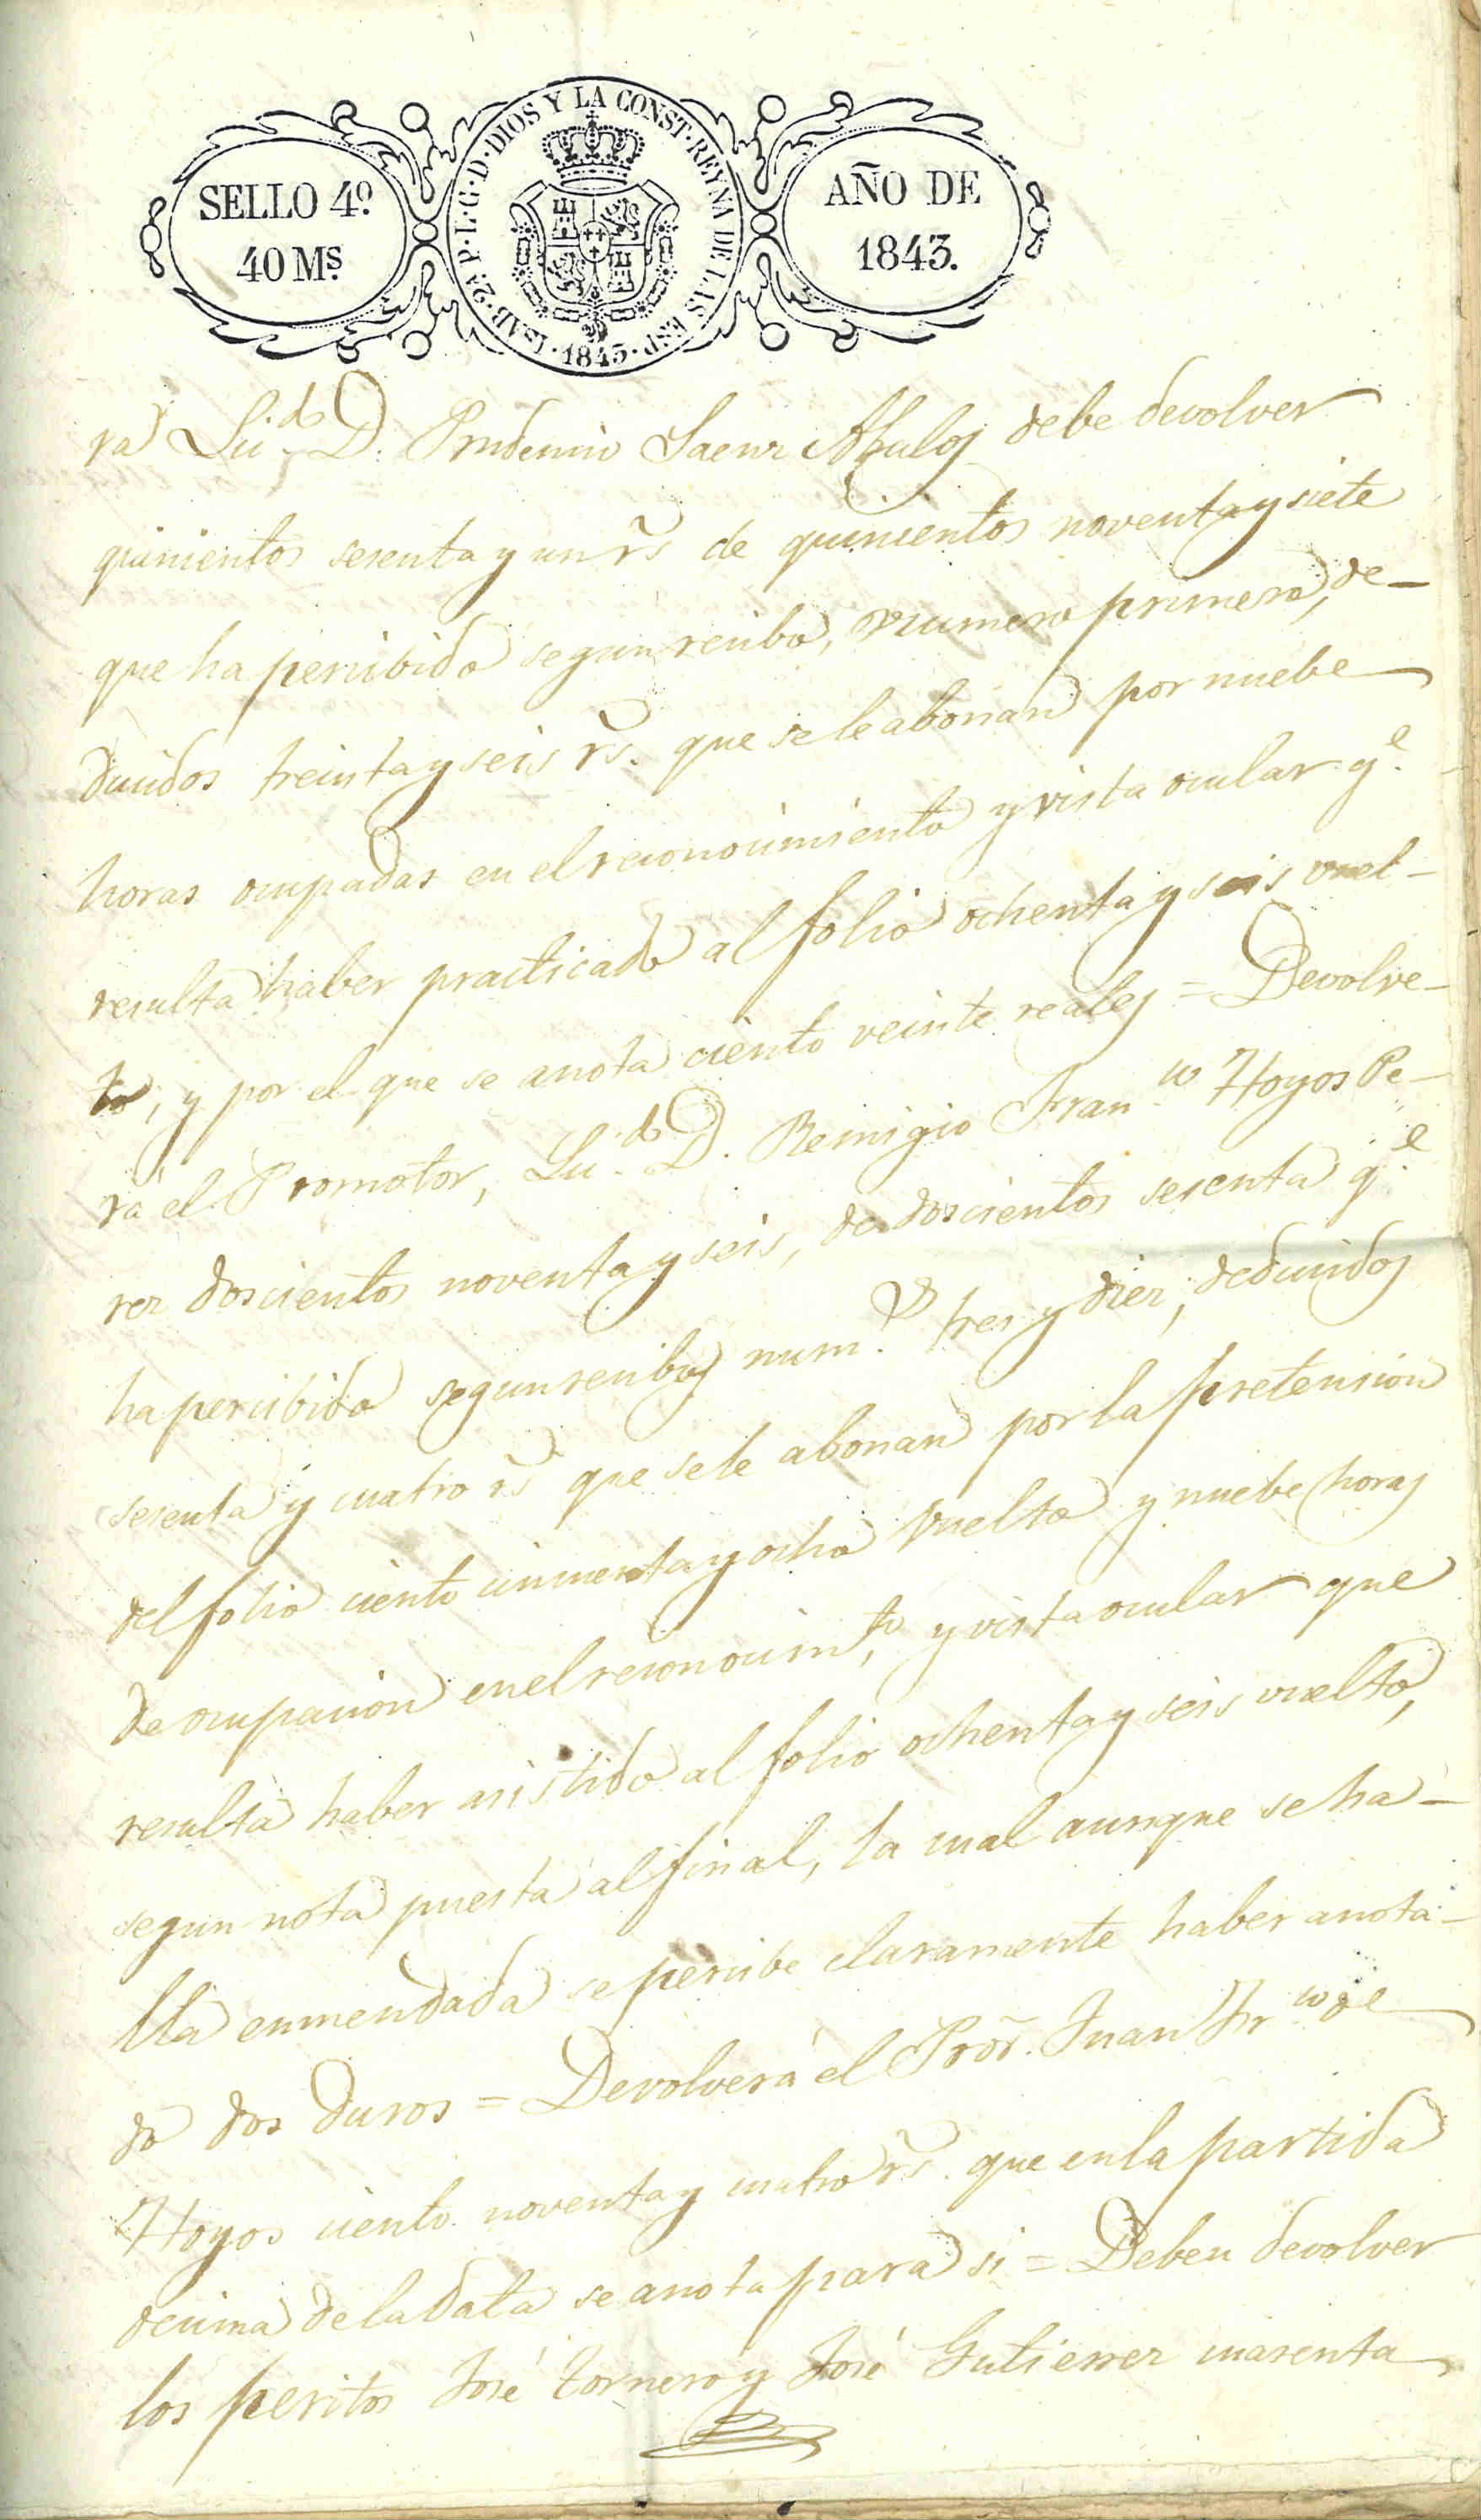 SELLO 4º.
40 Ms.
ISAB. 2ª P. L. G. D. DIOS Y LA CONST. REYNA DE LAS ESP. 1843.
AÑO DE
1843.
ra Licdo D. Prudencio Saenz debe devolver
quinientos sesenta y un rs de quinientos noventa y siete
que ha percibido segun recibo, numero primero, de-
ducidos treinta y seis rs. que se le abonan por nuebe
horas ocupadas en el reconocimiento y vista ocular qe.
resulta haber practicado al folio ochenta y seis vuel-
to, y por el que se anota ciento veinte reales = Devolve-
rá el Promotor, Licdo D. Remigio Franco Hoyos Pe-
rez doscientos noventa y seis, de doscientos sesenta qe.
ha percibido segun recibos num.s tres y diez, deducidos
sesenta y cuatro rs que se le abonan por la pretension
del folio ciento cincuenta y ocho vuelto y nuebe horas
de ocupacion en el reconocimto, y vista ocular que
resulta haber asistido al folio ochenta y seis vuelto,
segun nota puesta al final, la cual aunque se ha-
lla enmendada se percibe claramente haber anota-
do dos duros = Devolverá el Pror. Juan Frco de
Hoyos ciento noventa y cuatro rs. que en la partida
decima de la data se anota para si = Deben devolver
los peritos José Tornero y José Gutierrez cuarenta